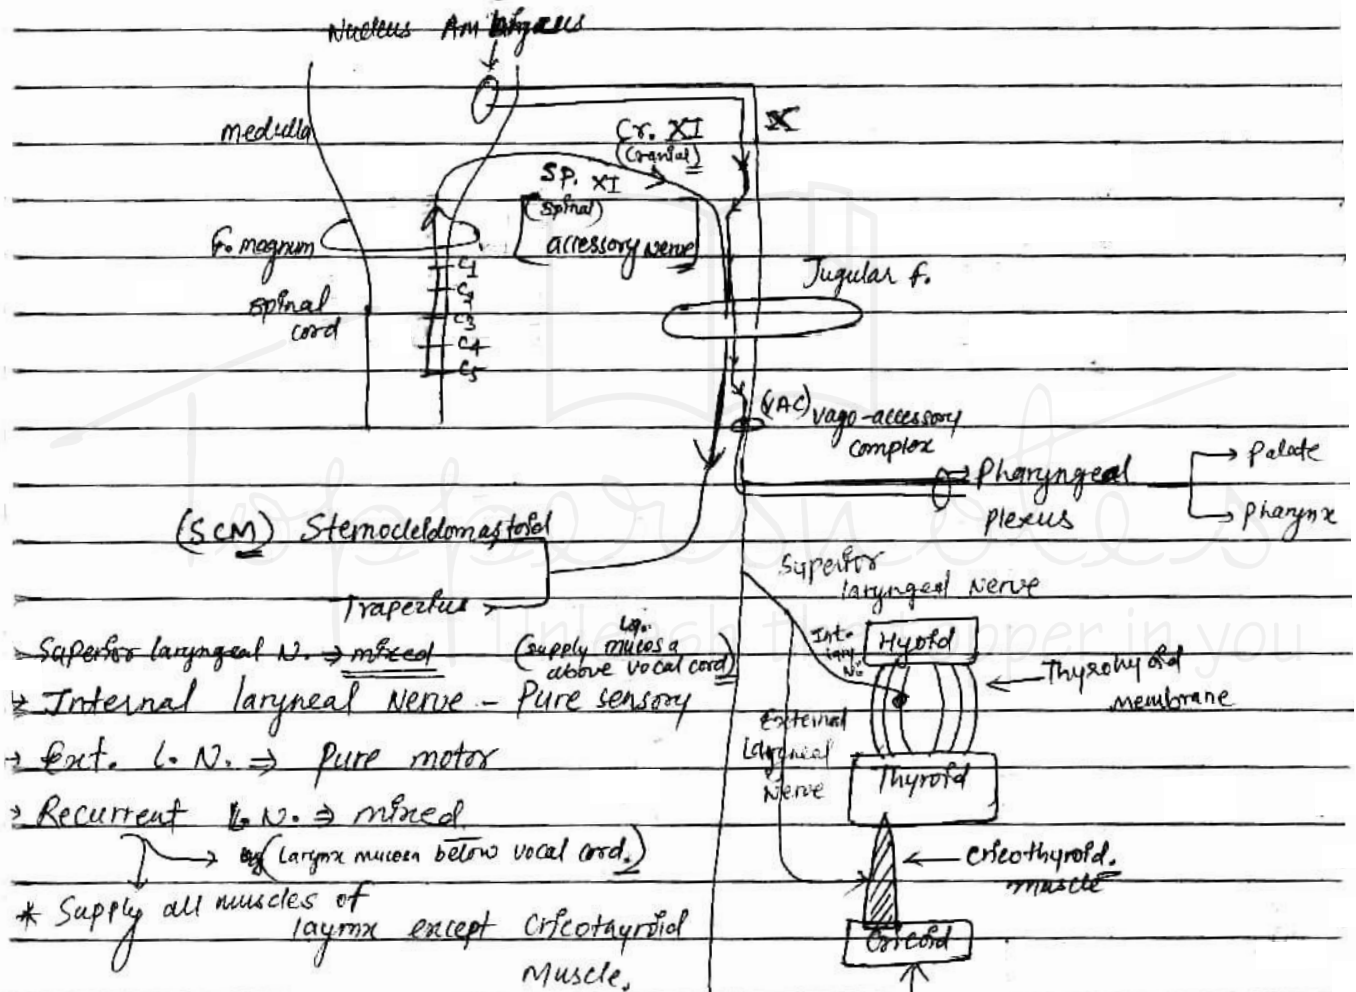 Nucleus Ambiguus
medulla
Cr. XI
(cranial)
X
SP. XI
(spinal)
accessory nerve
F. magnum
C1
C2
C3
C4
C5
spinal
cord
Jugular f.
(VAC) vago-accessory
complex
Pharyngeal
plexus
Palate
Pharynx
(SCM) Sternocleidomastoid
Trapezius
Superior
laryngeal Nerve
Int.
lary.
N.
Hyoid
Thyrohyoid
membrane
External
Laryngeal
Nerve
Thyroid
cricothyroid
muscle
Cricoid
Superior laryngeal N. → mixed
(supply mucosa
above vocal cord)
→ Internal laryneal Nerve - Pure sensory
→ Ext. L. N. ⇒ Pure motor
→ Recurrent L. N. ⇒ mixed
(larynx mucosa below vocal cord.)
* Supply all muscles of
layrnx except Cricothyroid
Muscle.
Toppersnotes
Unleash the topper in you